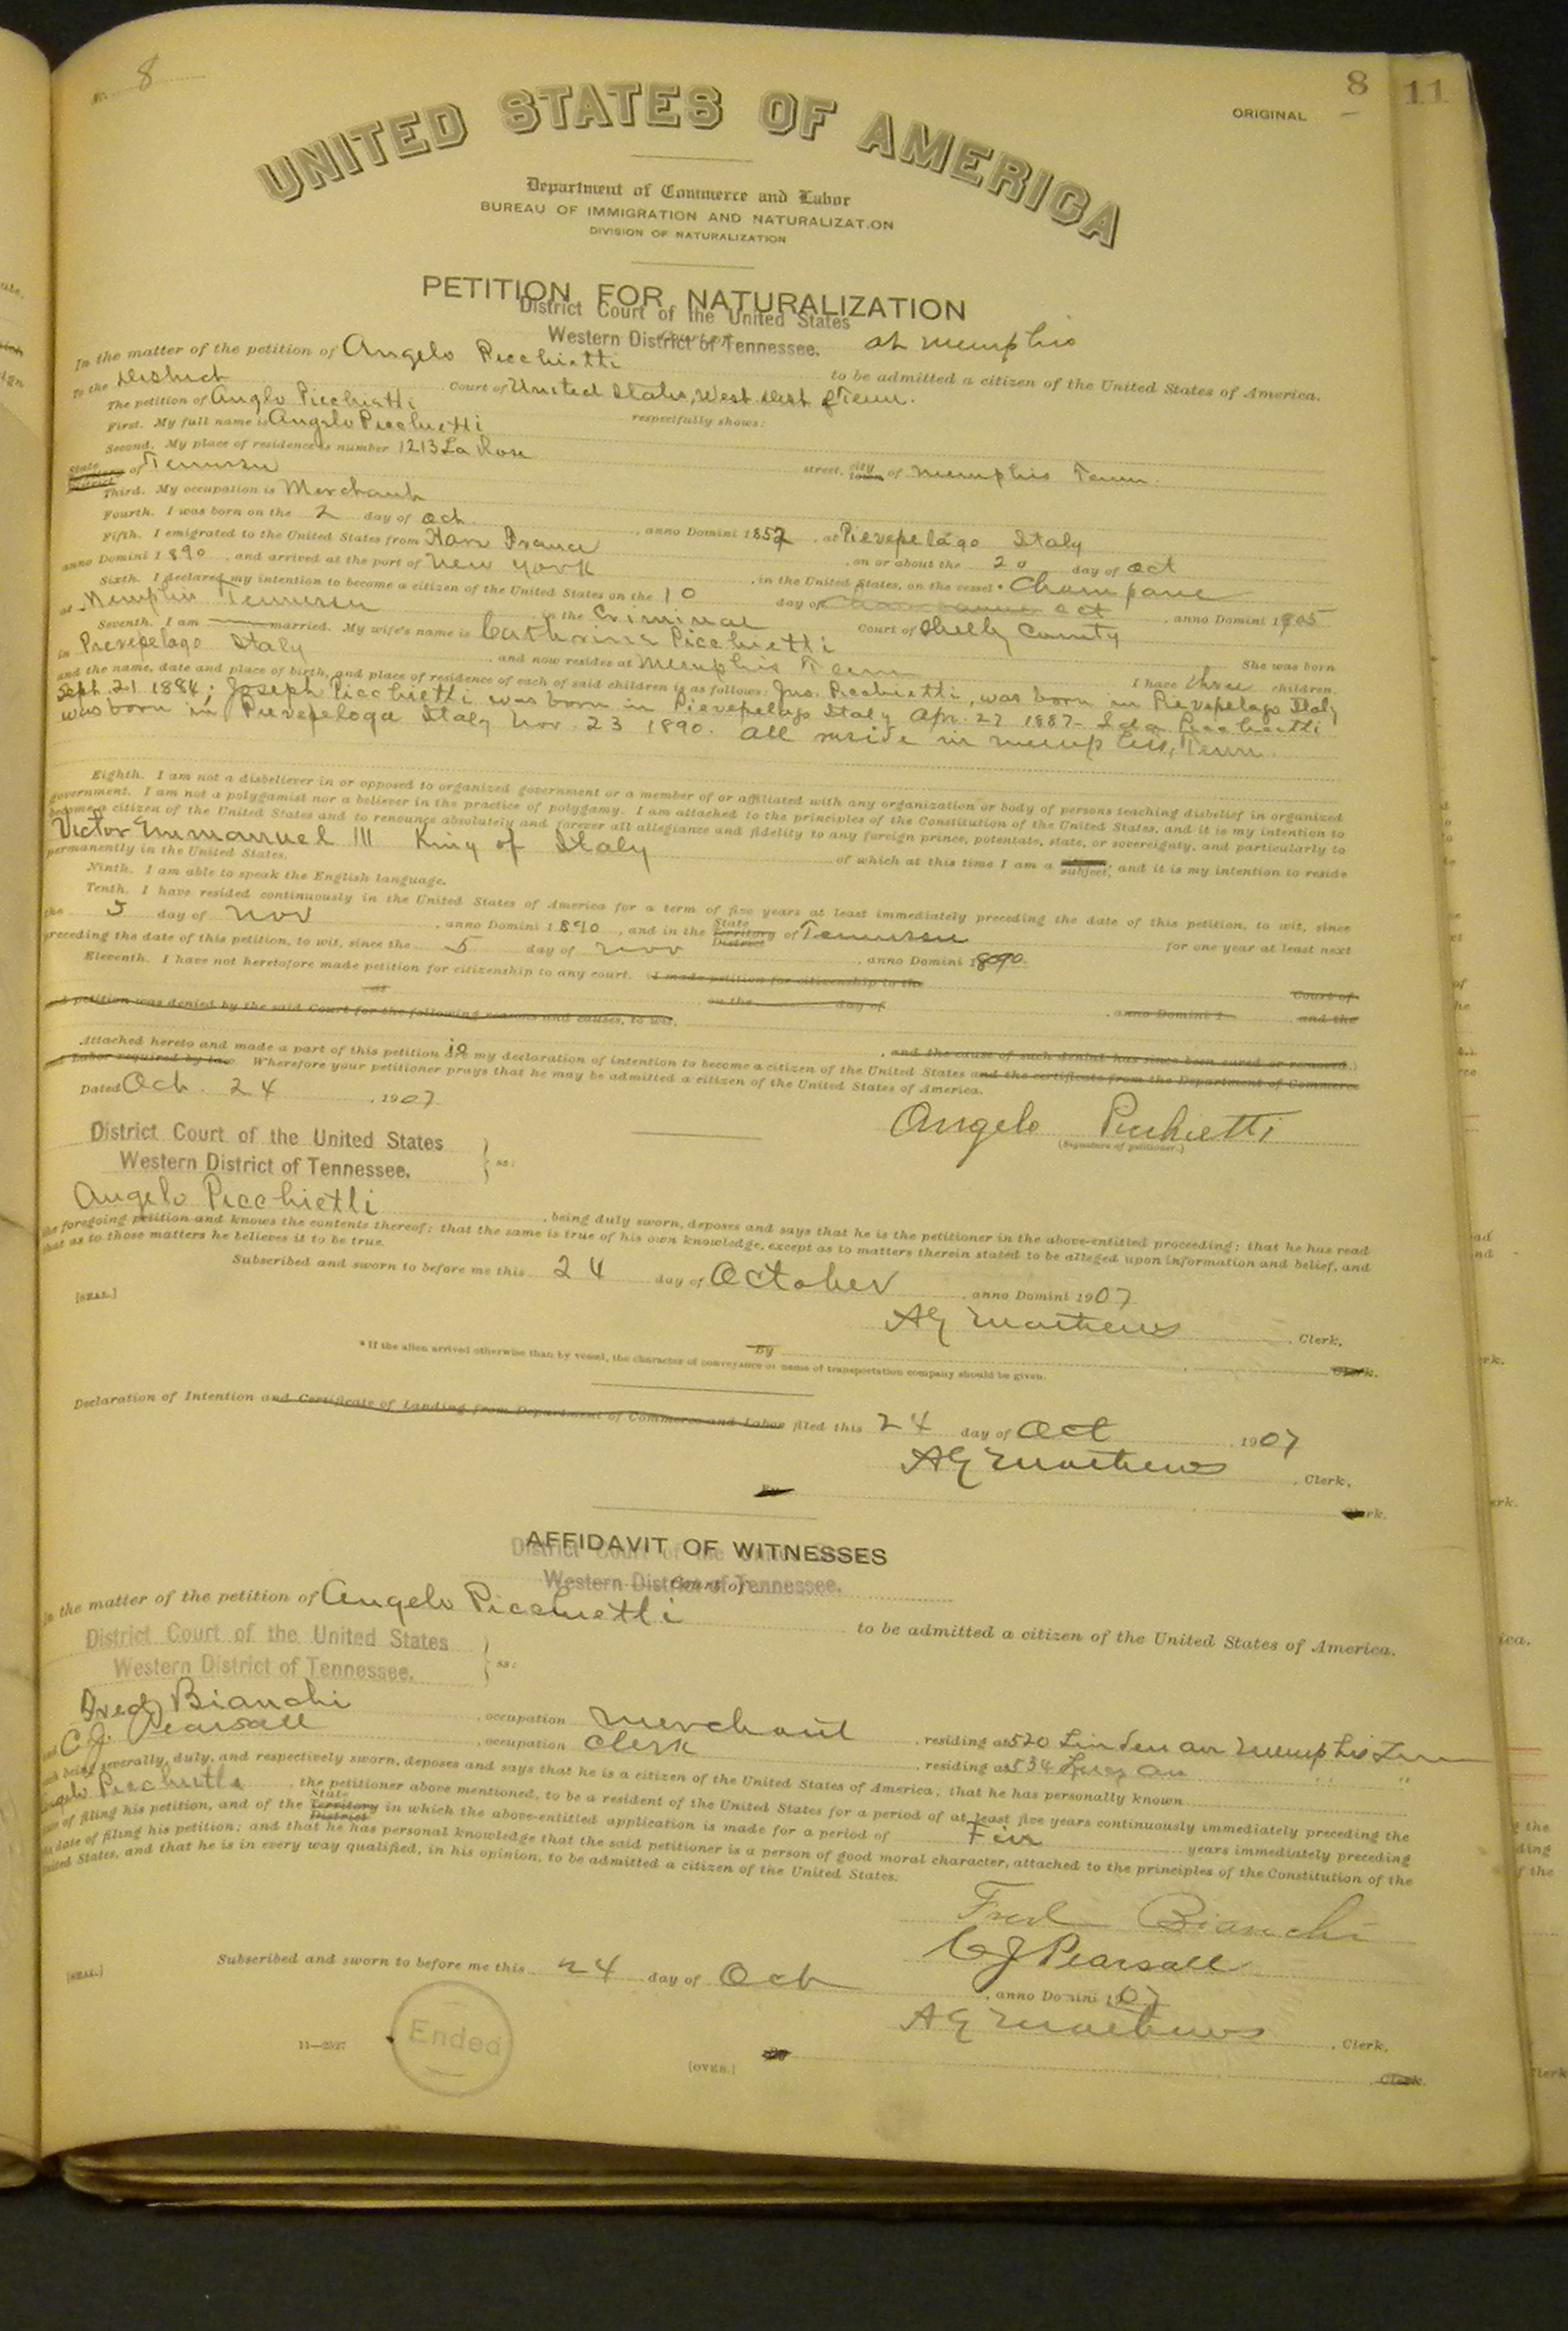 No. 8
8
11
ORIGINAL
UNITED STATES OF AMERICA
Department of Commerce and Labor
BUREAU OF IMMIGRATION AND NATURALIZATION
DIVISION OF NATURALIZATION
PETITION FOR NATURALIZATION
District Court of the United States
Western District of Tennessee. at Memphis
In the matter of the petition of Angelo Picchietti to be admitted a citizen of the United States of America.
To the District Court of United States, West Dist of Tenn.
The petition of Anglo Picchietti respectfully shows:
First. My full name is Angelo Picchietti
Second. My place of residence is number 1213 La Rose street, city town of Memphis Tenn.
State Territory District of Tennessee
Third. My occupation is Merchant
Fourth. I was born on the 2 day of Oct., anno Domini 1852, at Pievepelago Italy
Fifth. I emigrated to the United States from Harv France, on or about the 20 day of Oct
anno Domini 1890, and arrived at the port of New York, in the United States, on the vessel * Champane
Sixth. I declared my intention to become a citizen of the United States on the 10 day of Oct, anno Domini 1905
at Memphis Tennessee in the Criminal Court of Shelby County
Seventh. I am married. My wife's name is Catherina Picchietti She was born
in Pievepelago Italy, and now resides at Memphis Tenn I have three children,
and the name, date and place of birth, and place of residence of each of said children is as follows: Jno. Picchietti, was born in Pievepelago Italy
Sept. 21 1884; Joseph Picchietti was born in Pievepelago Italy Apr. 27 1887- Ida Picchietti
was born in Pievepeloga Italy Nov. 23 1890. All reside in Memphis, Tenn.
Eighth. I am not a disbeliever in or opposed to organized government or a member of or affiliated with any organization or body of persons teaching disbelief in organized
government. I am not a polygamist nor a believer in the practice of polygamy. I am attached to the principles of the Constitution of the United States, and it is my intention to
become a citizen of the United States and to renounce absolutely and forever all allegiance and fidelity to any foreign prince, potentate, state, or sovereignty, and particularly to
Victor Emmanuel III King of Italy of which at this time I am a subject; and it is my intention to reside
permanently in the United States.
Ninth. I am able to speak the English language.
Tenth. I have resided continuously in the United States of America for a term of five years at least immediately preceding the date of this petition, to wit, since
the 5 day of Nov, anno Domini 1890, and in the State Territory District of Tennessee for one year at least next
preceding the date of this petition, to wit, since the 5 day of Nov, anno Domini 1890.
Eleventh. I have not heretofore made petition for citizenship to any court. (I made petition for citizenship to the Court of
at on the day of, anno Domini 1 and the
said petition was denied by the said Court for the following reasons and causes, to wit,
, and the cause of such denial has since been cured or removed.)
Attached hereto and made a part of this petition is my declaration of intention to become a citizen of the United States and the certificate from the Department of Commerce
and Labor required by law. Wherefore your petitioner prays that he may be admitted a citizen of the United States of America.
Dated Oct. 24, 1907
Angelo Picchietti
(Signature of petitioner.)
District Court of the United States
Western District of Tennessee. ss:
Angelo Picchietti, being duly sworn, deposes and says that he is the petitioner in the above-entitled proceeding; that he has read
the foregoing petition and knows the contents thereof; that the same is true of his own knowledge, except as to matters therein stated to be alleged upon information and belief, and
that as to those matters he believes it to be true.
Subscribed and sworn to before me this 24 day of October, anno Domini 1907
[SEAL.]
AG Matthews, Clerk.
By Clerk.
* If the alien arrived otherwise than by vessel, the character of conveyance or name of transportation company should be given.
Declaration of Intention and Certificate of Landing from Department of Commerce and Labor filed this 24 day of Oct, 1907
AG Matthews, Clerk.
By Clerk.
AFFIDAVIT OF WITNESSES
District Court of the United States
Western District of Tennessee.
Court of
In the matter of the petition of Angelo Picchietti to be admitted a citizen of the United States of America.
District Court of the United States
Western District of Tennessee. ss:
Fred Bianchi, occupation Merchant, residing at 520 Linden av Memphis Tenn
and C.J. Pearsall, occupation Clerk, residing at " "
each being severally, duly, and respectively sworn, deposes and says that he is a citizen of the United States of America; that he has personally known
Angelo Picchietti, the petitioner above mentioned, to be a resident of the United States for a period of at least five years continuously immediately preceding the
date of filing his petition, and of the State Territory District in which the above-entitled application is made for a period of Five years immediately preceding
the date of filing his petition; and that he has personal knowledge that the said petitioner is a person of good moral character, attached to the principles of the Constitution of the
United States, and that he is in every way qualified, in his opinion, to be admitted a citizen of the United States.
Fred Bianchi
C J Pearsall
Subscribed and sworn to before me this 24 day of Oct, anno Domini 1907
[SEAL.]
AG Matthews, Clerk.
Ended
11-2527
[OVER.]
By Clerk.